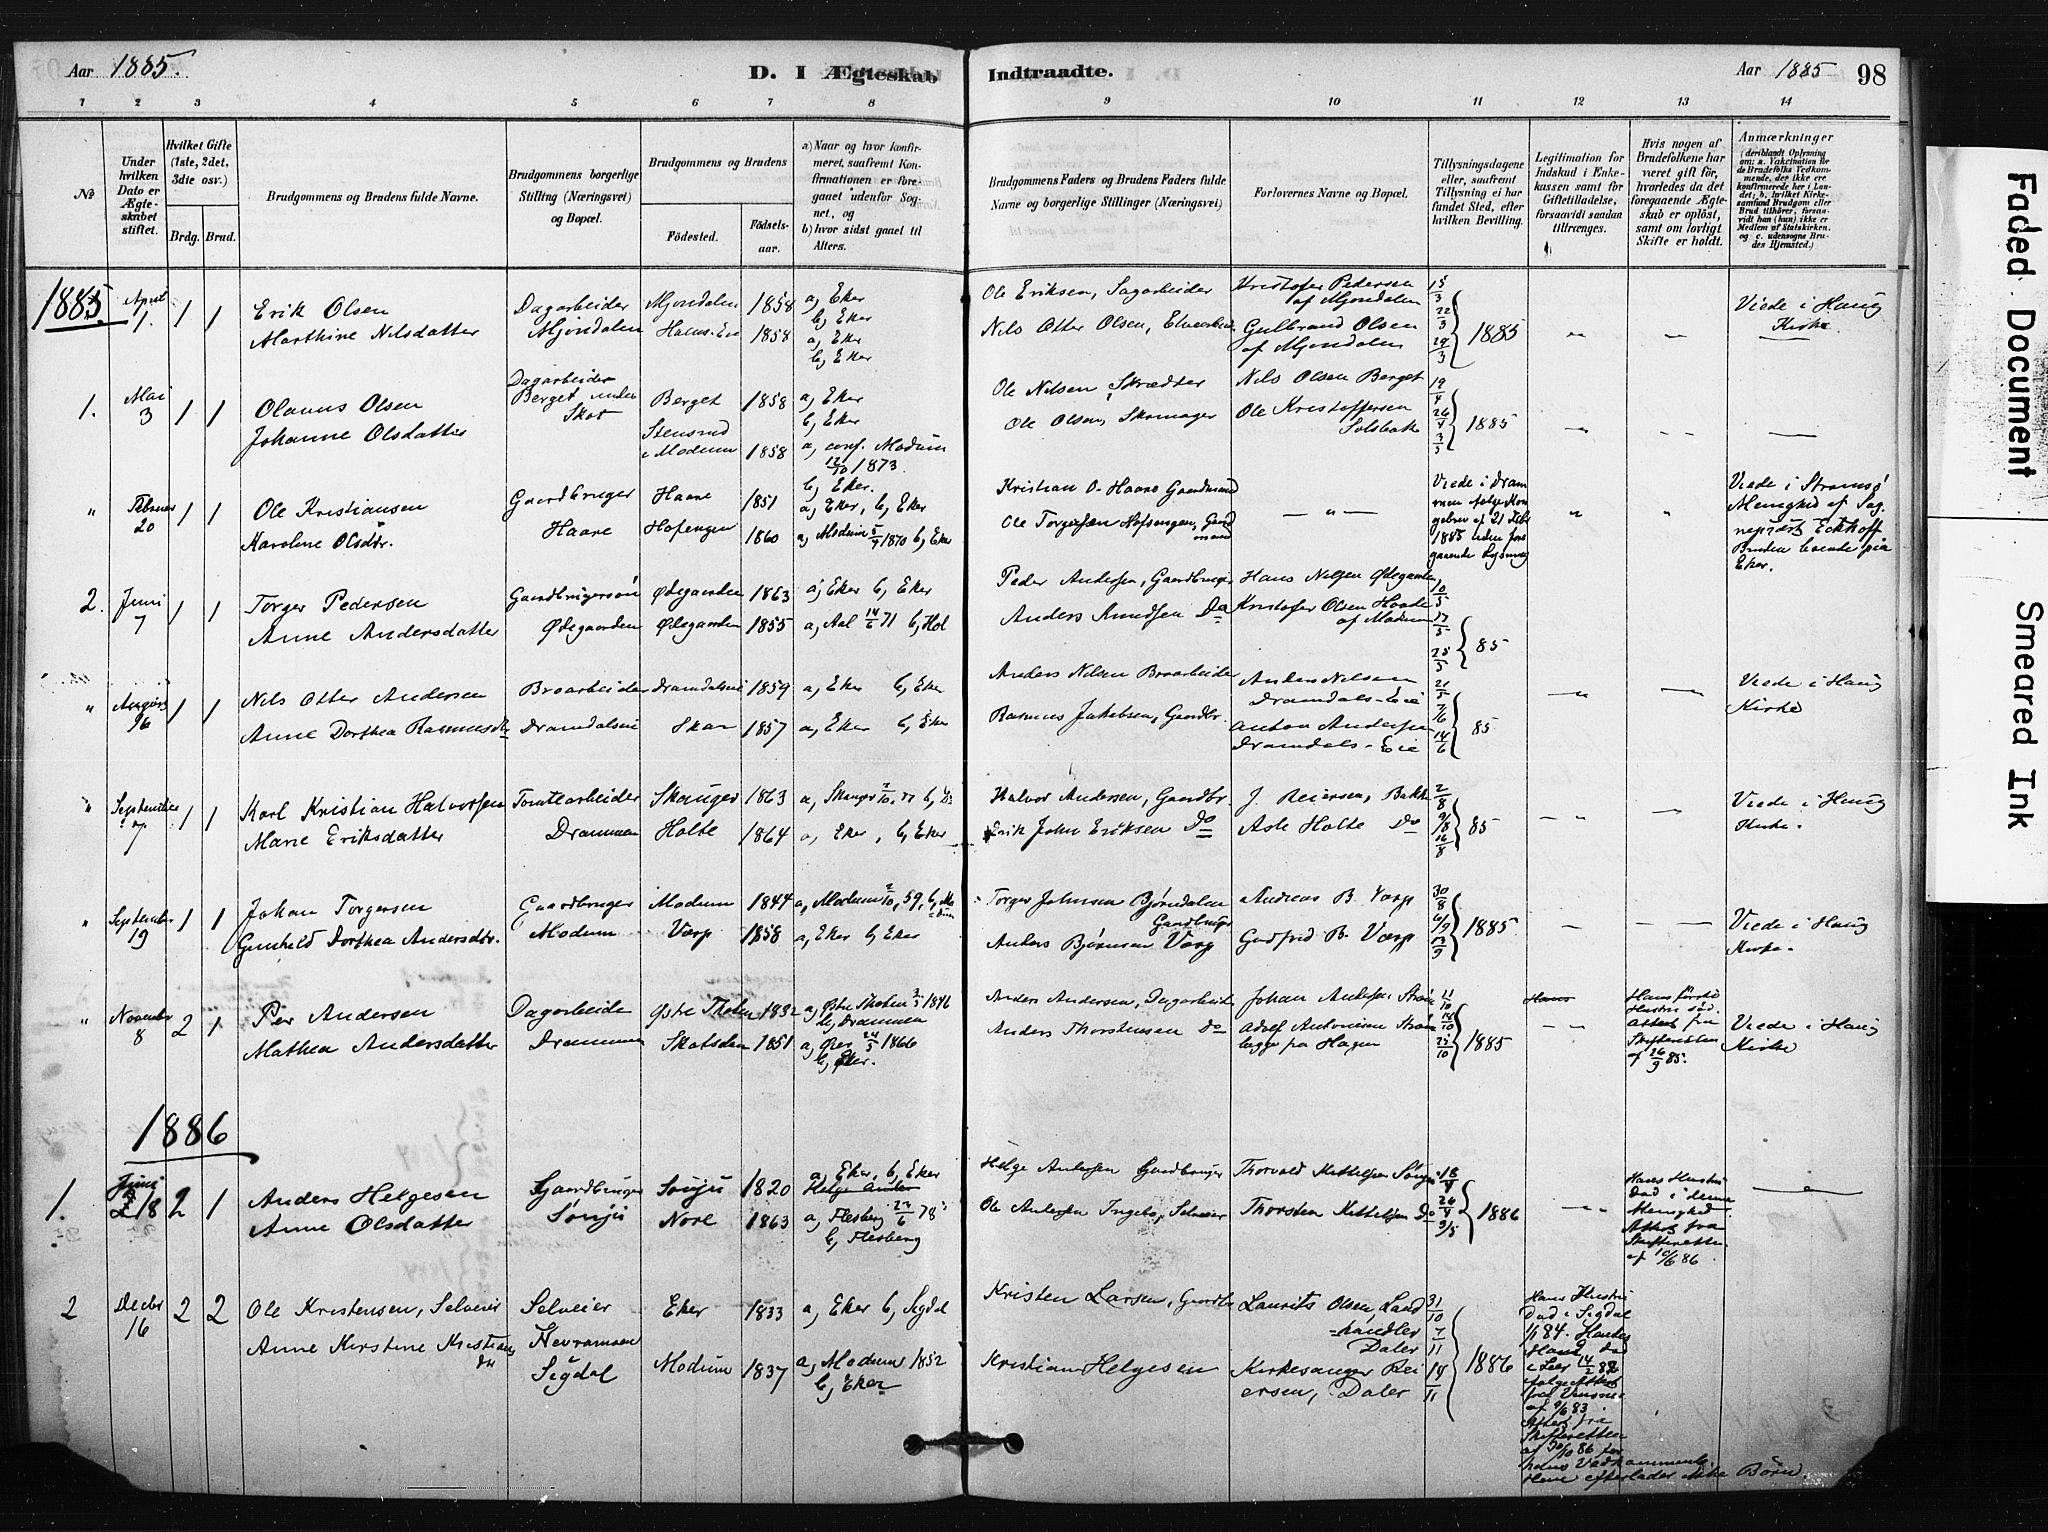 Aar 1885.
D. I Ægteskab
Indtraadte.
Aar 1885
98
1 2 3 4 5 6 7 8 9 10 11 12 13 14
No
Under hvilken Dato er Ægteskabet stiftet.
Hvilket Gifte (1ste, 2det, 3die osv.)
Brdg. Brud.
Brudgommens og Brudens fulde Navne.
Brudgommens borgerlige Stilling (Næringsvei) og Bopæl.
Brudgommens og Brudens
Födested.
Födselsaar.
a) Naar og hvor konfirmeret, saafremt Konfirmationen er foregaaet udenfor Sognet, og
b) hvor sidst gaaet til Alters.
Brudgommens Faders og Brudens Faders fulde Navne og borgerlige Stillinger (Næringsvei)
Forlovernes Navne og Bopæl.
Tillysningsdagene eller, saafremt Tillysning ei har fundet Sted, efter hvilken Bevilling.
Legitimation for Indskud i Enkekassen samt for Giftetilladelse, forsaavidt saadan tiltrænges.
Hvis nogen af Brudefolkene har været gift för, hvorledes da det foregaaende Ægteskab er oplöst, samt om lovligt Skifte er holdt.
Anmærkninger
(deriblandt Oplysning om: a. Vakcination for de Brudefolks Vedkommende, der ikke ere konfirmerede her i Landet; b. hvilket Kirkesamfund Brudgom eller Brud tilhörer, forsaavidt han (hun) ikke er Medlem af Statskirken, og c. udensogns Brudes Hjemsted.)
1885. April 1. 1 1 Erik Olsen Dagarbeider Mjøndalen 1858 a, Eker b, Eker
Marthine Nilsdatter Mjøndalen 1858 a, Eker b, Eker
Ole Eriksen, Sagarbeider Kristofer Pedersen af Mjøndalen 15/3
Nils Otter Olsen, Gulbrand Olsen af Mjøndalen 22/3 29/3 1885
Viede i Haug Kirke.
1. Mai 3 1 1 Olaus Olsen Dagarbeider Berget under Berget 1858 a, Eker b, Eker
Johanne Olsdatter Stensrud i Modum 1858 a, conf. Modum 12/10 1873. b, Eker.
Ole Nilsen, Skrædder Nils Olsen Berget 19/4
Ole Olsen, Skomager Ole Kristoffersen Solsbak 26/4 3/5 1885
" Februar 20 1 1 Ole Kristiansen Gaardbruger Haare 1851 a, Eker, b, Eker
Karoline Olsdtr. Haare Hofsengen 1860 a, Modum 5/7 1870 b, Eker
Kristian O. Haare Gaardmand
Ole Torgersen Hofsengen, Gaardmand — " —
Viede i Drammen ifølge Kongebrev af 21 Febr 1885 uden foregaaende Lysning
Viede i Strømsø Menighed af Sognepræst Eckhoff Bruden boende paa Eker.
2. Juni 7 1 1 Torger Pedersen Gaardbrugersøn Ødegaarden 1863 a, Eker b, Eker
Anne Andersdatter Ødegaarden Ødegaarden 1855 a, Aal 14/6 71 b, Hol
Peder Andersen, Gaardbruger Hans Nilsen Ødegaarden 10/5
Anders Knudsen Do Kristofer Olsen af Modum 17/5 25/5 85
" August 1 1 Nils Otter Andersen Broarbeider Dramdalseie 1859 a, Eker b, Eker
Anne Dorthea Rasmusdtr Dramdalseie Skar 1857 a, Eker b, Eker
Anders Nilsen Broarbeider Anders Nilsen Dramdals-Eie 21/5
Rasmus Jakobsen, Gaardbr. Anton Andersen Dramdals-Eie 7/6 14/6 85
Viede i Haug Kirke
" September 7 1 1 Karl Kristian Halvorsen Tomtearbeider Skauger 1863 a, Skauger
Marie Eriksdatter Drammen Holte 1864 a, Eker, b, Eker
Halvor Andersen, Gaardbr. J. Reiersen, Bakke 2/8
Erik John Eriksen Do Asle Holte Do 9/8 16/8 85
Viede i Haug Kirke.
" September 19 1 1 Johan Torgersen Gaardbruger Modum 1844 a, Modum 2/10 59, b, Modum
Gunhild Dorthea Andersdtr. Modum Varp 1858 a, Eker b, Eker
Torger Johnsen Bjørndalen Gaardbruger Andreas B. Varp 30/8
Anders Bjørnsen Varp Gudfrid B. Varp 6/9 13/9 1885
Viede i Haug Kirke.
" November 8 2 1 Per Andersen Dagarbeider Østre Thoten 1832 a, Østre Thoten 1846 b, Drammen
Mathea Andersdatter Drammen Skotselven 1851 a, 1866 b, Eker.
Anders Andersen, Dagarbeider Johan Andersen 11/10
Anders Thorstensen Do Adolf Antonisen begge fra Hagen 18/10 25/10 1885
Hans første Hustru død. Attest fra Skifteretten af 26/9 85.
Viede i Haug Kirke
1886
1. Juni 18 2 1 Anders Helgesen Gaardbruger Sønju 1820 a, Eker, b, Eker
Anne Olsdatter Sønju Nore 1863 a, Flesberg 78 b, Flesberg
Helge Andersen Gaardbruger Thorvald Kittelsen Sønju 18/4
Ole Andersen Selveier Thorsten Kittelsen Do 26/4 9/5 1886
Hans Hustru Død i denne Menighed. Attest fra Skifteretten af 10/6 86
2 Decbr 16 2 2 Ole Kristensen, Selveier Selveier Eker 1833 a, Eker b, Sigdal
Anne Kirstine Kristiansdtr Nevramoen Sigdal Modum 1837 a, Modum 1852 b, Eker
Kristen Larsen, Gaardbr Laurits Olsen, Landhandler Daler 31/10 7/11
Kristian Helgesen Kirkesanger Reiersen, Daler 14/11 1886
Hans Hustru Død i Sigdal 84. Hendes Mand død i Eker 14/2 82 ifølge Attest fra af 83. Attest fra Skifteretten af 30/10 86 for hans Vedkommende. efterlader ikke Børn
Faded Document
Smeared Ink